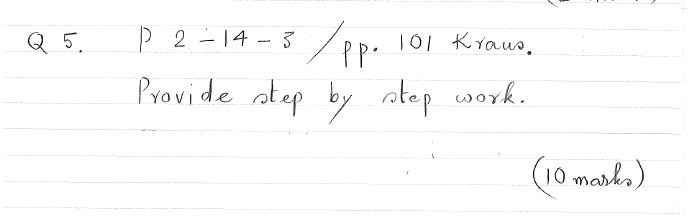 Q 5. P 2-14-3 / pp. 101 Kraus.
Provide step by step work.
(10 marks)